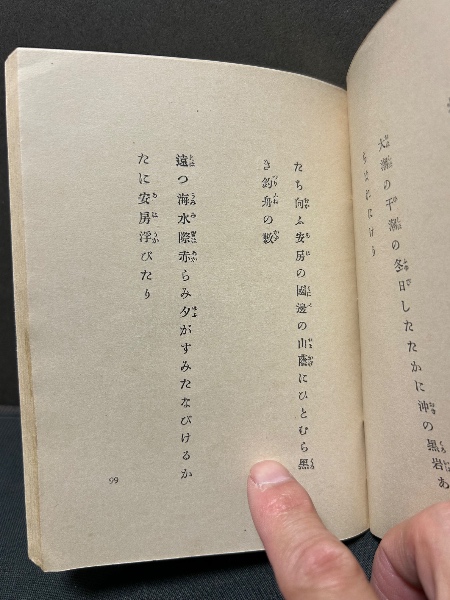 大潮の干潮の冬日したたかに沖の黒岩あ
らはれにけり
たち向ふ安房の國邊の山蔭にひとむら黒
き釣舟の數
遠つ海水際赤らみ夕がすみたなびけるか
たに安房浮びたり
99